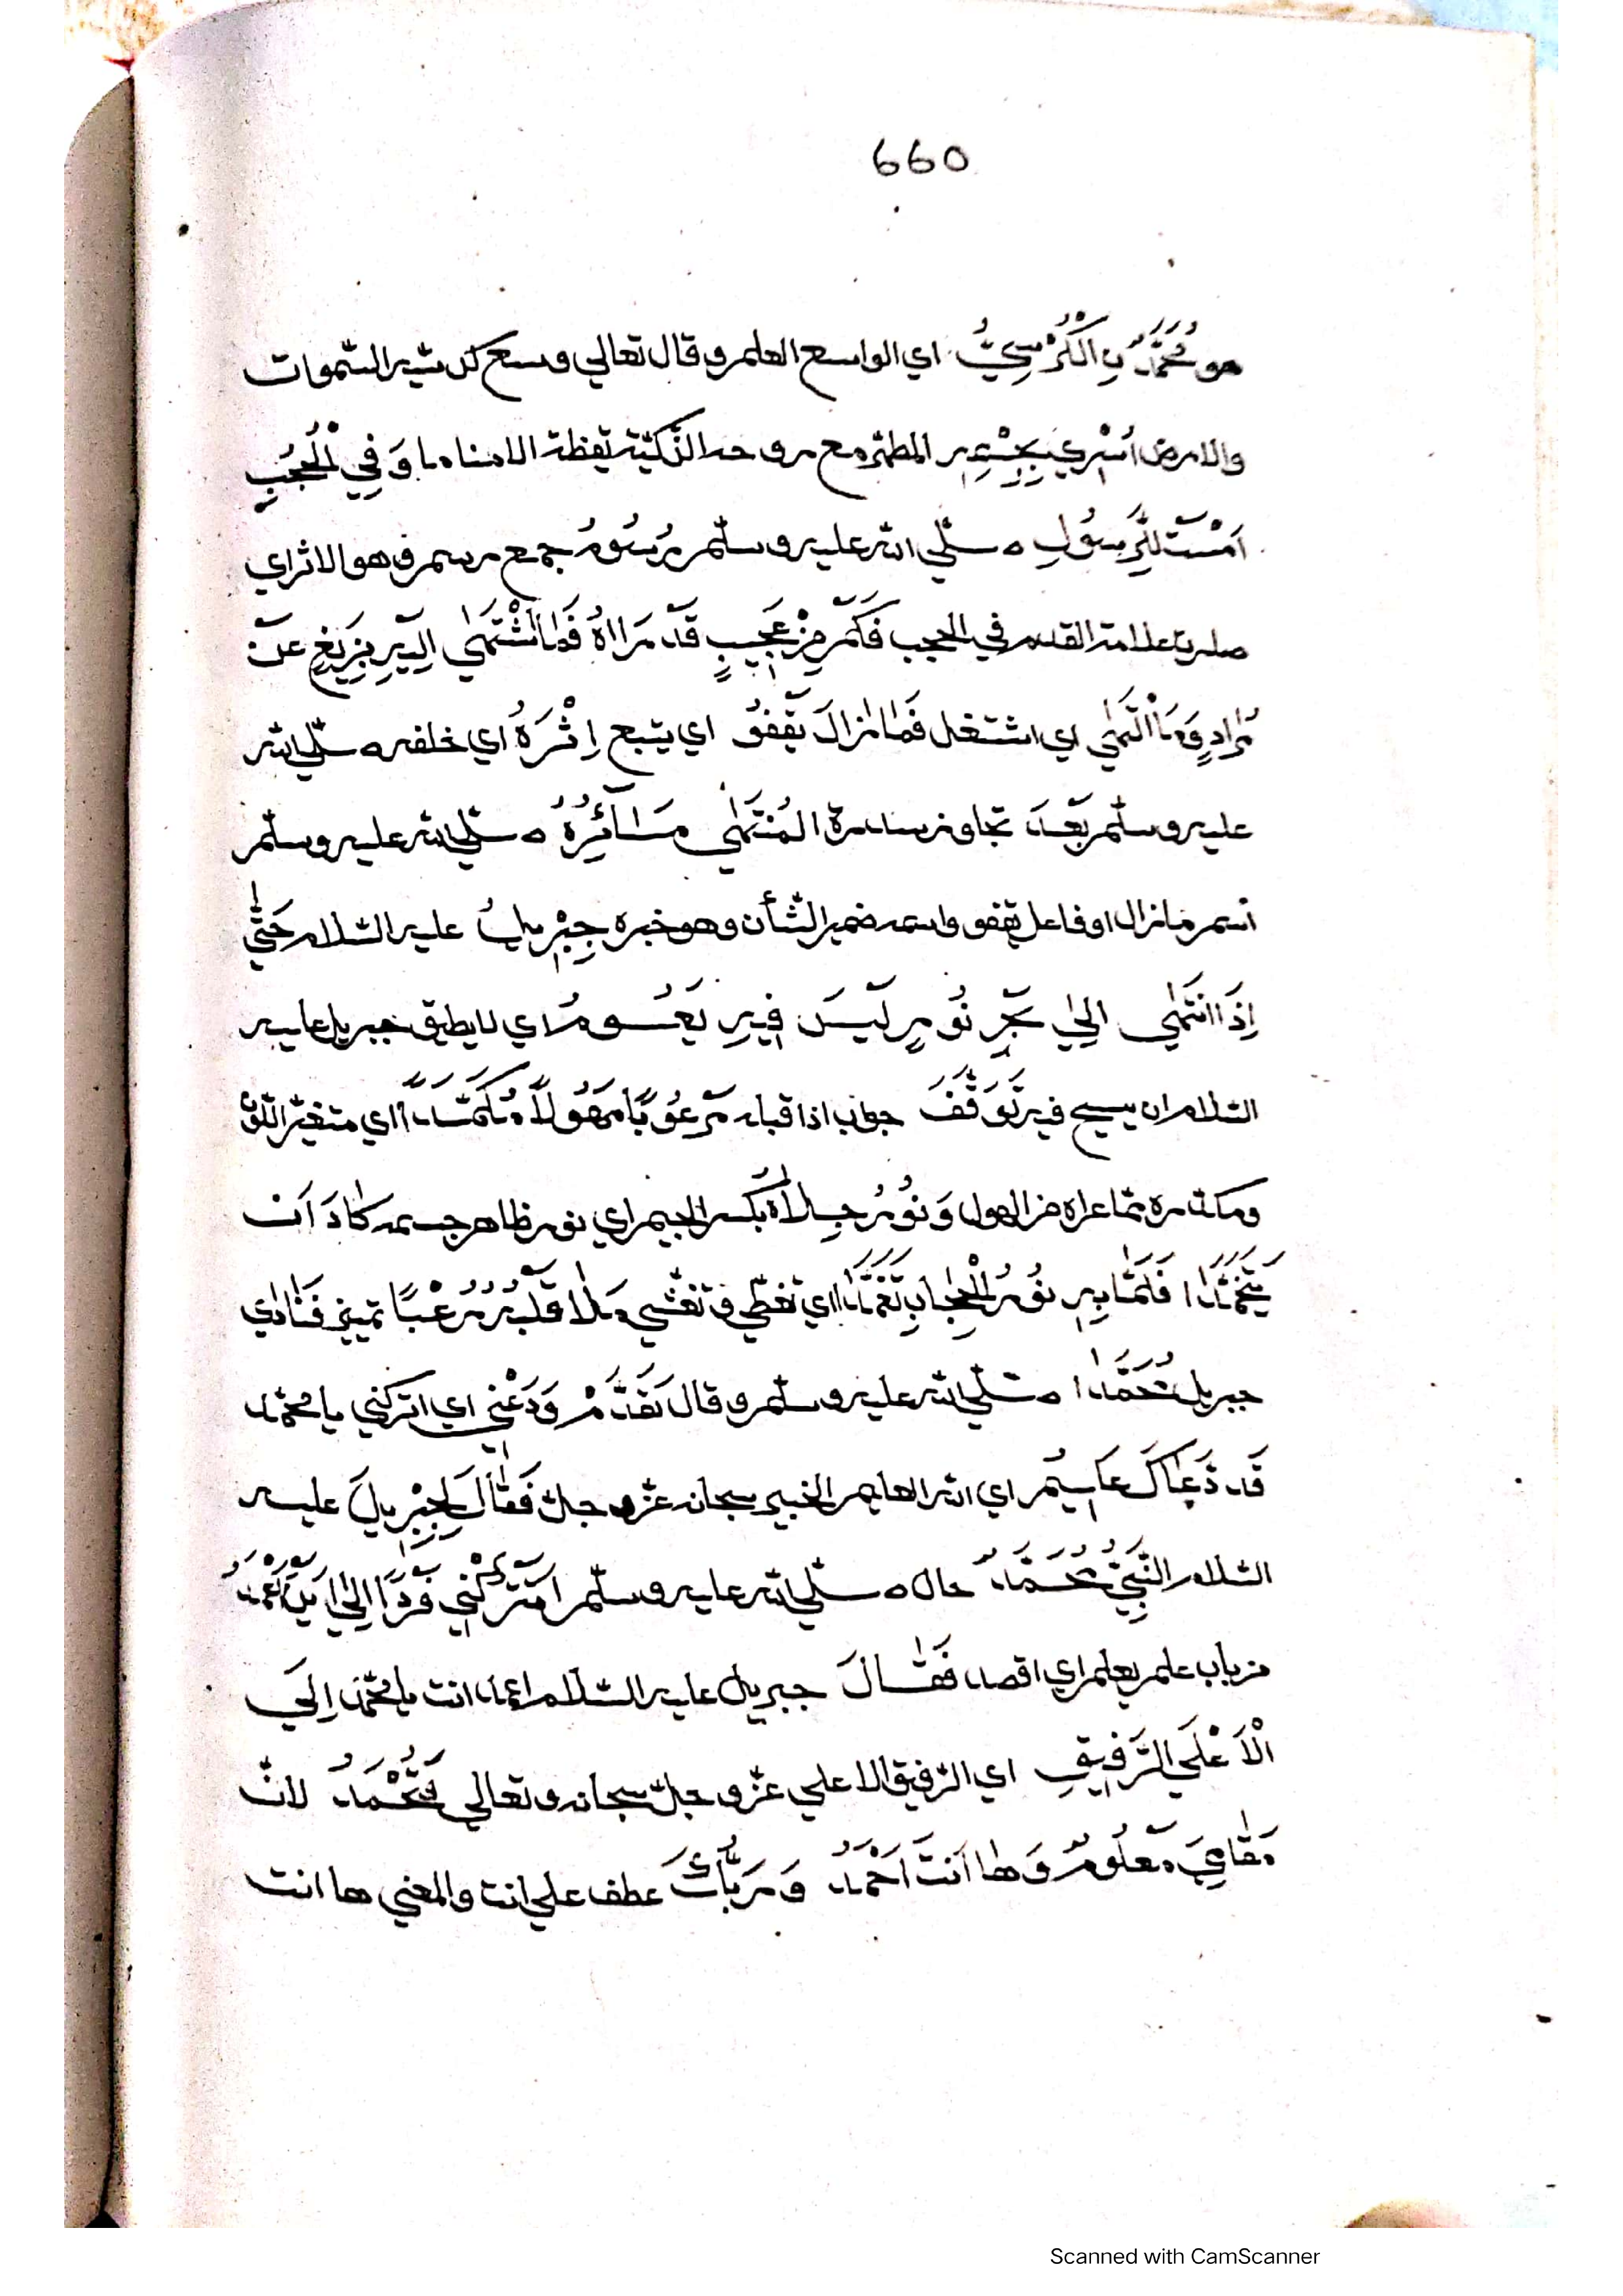 660
هو مُحَمَّدٌ بِالْكُرْسِيُّ اي الواسع العلم وقال تعالي وسع كرسيه السّموات
والارض اُسْرِي بِجِسْمِهِ المطهّر مع روحه الزّكيّة يقظة لا مناما وَفِي الْحُجُبِ
اَمْسَتْ لِلرَّسُولِ ه صلّي الله عليه وسلّم رُسُومُ جمع رسم وهو الاثر اي
علامة القدم في الحجب فَكَمْ مِنْ عَجِيبٍ قَدْ رَاٰهُ فَمَا اشْتَهٰي اِلَيْهِ بِزَيْغٍ عَنْ
مُرَادٍ وَمَا الْتَهٰي اي اشتغل فَمَا زَالَ يَقْفُو اي يتبع اِثْرَهُ اي خلفه ه صلّي الله
عليه وسلّم بَعْدَ تجاوز سدرة المُنْتَهٰي مَسَآئِرُهُ ه صلّي الله عليه وسلّم
اسم ما زال او فاعل يقفو واسمه ضمير الشّأن وهو خبره جِبْرِيلُ عليه السّلام حَتّٰي
اِذَا انْتَهٰي اِلٰي بَحْرِ نُورٍ لَيْسَ فِيهِ يَعُومُ اي لا يطيق جبريل عليه
السّلام ان يسبح فيه تَوَقَّفَ جواب اذا قبله مَرْعُوبًا مَهُولًا مُكَمَّدًا اي متغيّر اللّون
ومكدّره ممّا عراه من الهول وَنُورُ جِلَاهُ بكسر الجيم اي نور ظاهر جسمه كَادَ اَنْ
يَتَخَمَّدَا فَلَمَّا بِهِ نُورُ الْحِجَابِ تَغَمَّدَا اي تغطّي وتغشّي مَلَا قَلْبَهُ رُعْبًا تمييز فَنَادٰي
جبريل مُحَمَّدًا ه صلّي الله عليه وسلّم وقال تَقَدَّمْ وَدَعْنِي اي اتركني يا محمّد
قَد دَعَاكَ عَلِيمُ اي الله العليم الخبير سبحانه عزّ وجلّ فَقَالَ لِجِبْرِيلَ عليه
السّلام النَّبِيُّ مُحَمَّدٌ حال ه صلّي الله عليه وسلّم اَتَتْرُكُنِي فَرْدًا اِلٰي اَيْنَ اَعْمَدُ
من باب علم يعلم اي اقصد فَقَالَ جبريل عليه السّلام اعمد انت يا محمّد اِلَي
الْاَعْلَي الرَّفِيقِ اي الرّفيق الاعلي عزّ وجلّ سبحانه وتعالي فَتُحْمَدُ لانّ
مَقَامِيَ مَعْلُومٌ وَهَا اَنْتَ اَحْمَدُ وَرَبُّكَ عطف علي انت والمعني ها انت
Scanned with CamScanner